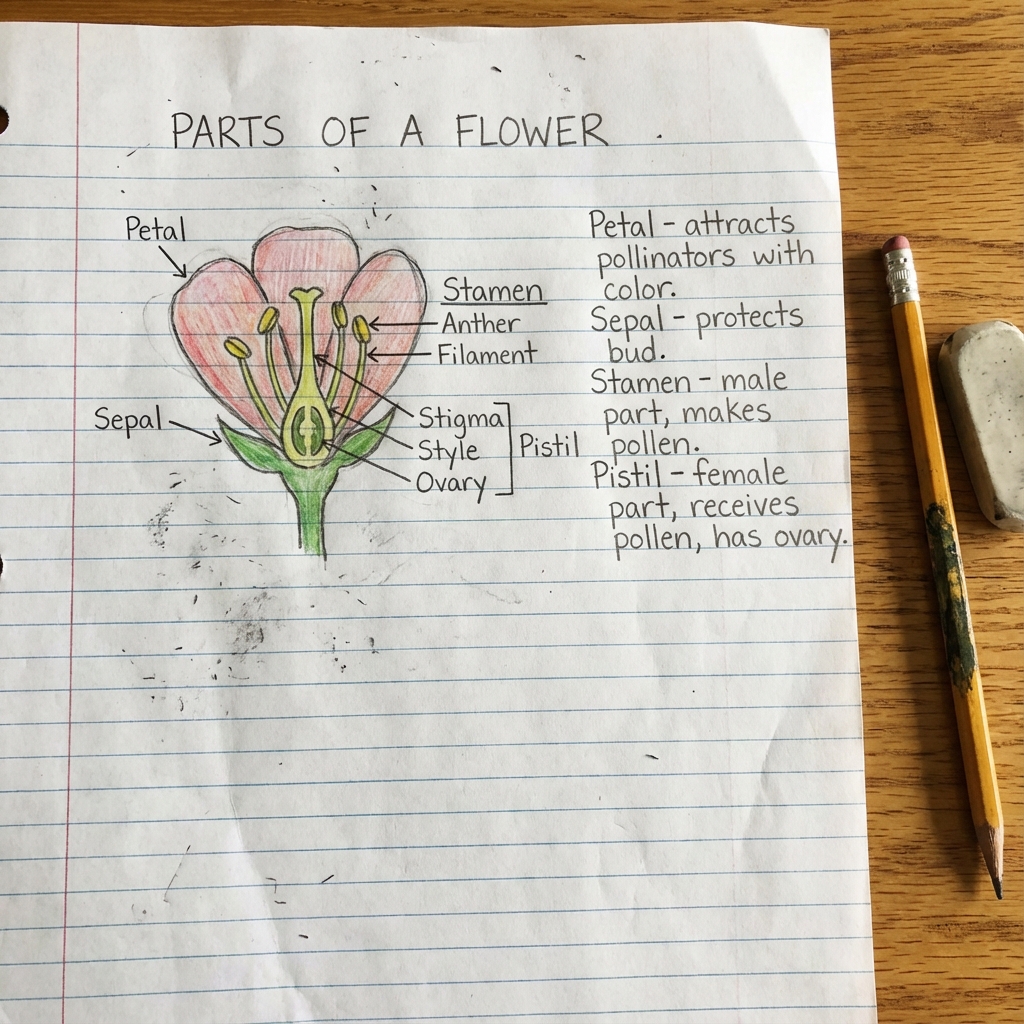 PARTS OF A FLOWER
Petal
Sepal
Stamen
Anther
Filament
Stigma
Style
Ovary
Pistil
Petal - attracts
pollinators with
color.
Sepal - protects
bud.
Stamen - male
part, makes
pollen.
Pistil - female
part, receives
pollen, has ovary.